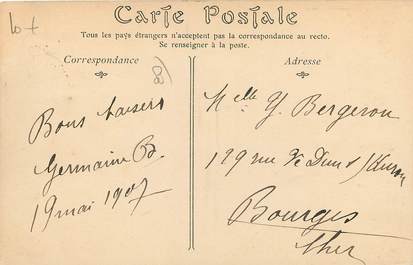 lot
Carte Postale
Tous les pays étrangers n'acceptent pas la correspondance au recto.
Se renseigner à la poste.
Correspondance
Bons baisers
Germaine B.
19 mai 1907
Adresse
Melle Y. Bergeron
129 rue de Dun s/Auron
Bourges
Cher